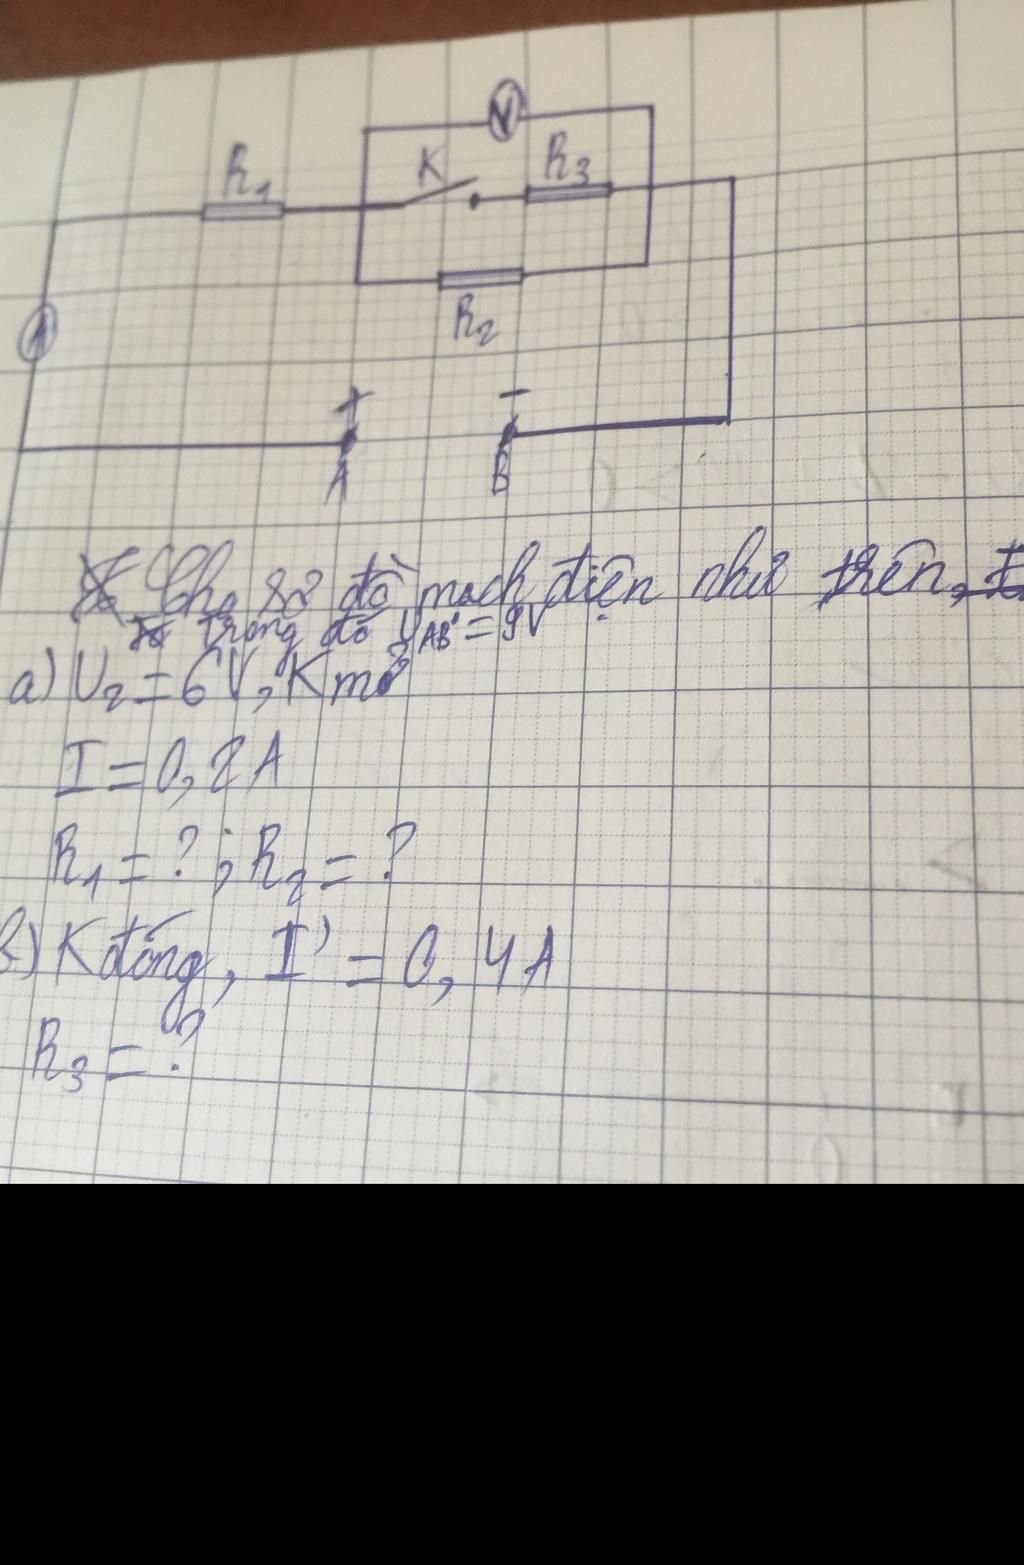 V
R₁ K R₃
R₂
A
+ -
A B
Cho sơ đồ mạch điện như trên,
trong đó U_AB = 9V
a) U₂ = 6V, K mở
I = 0,2A
R₁ = ? ; R₂ = ?
b) K đóng, I' = 0,4A
R₃ = ?